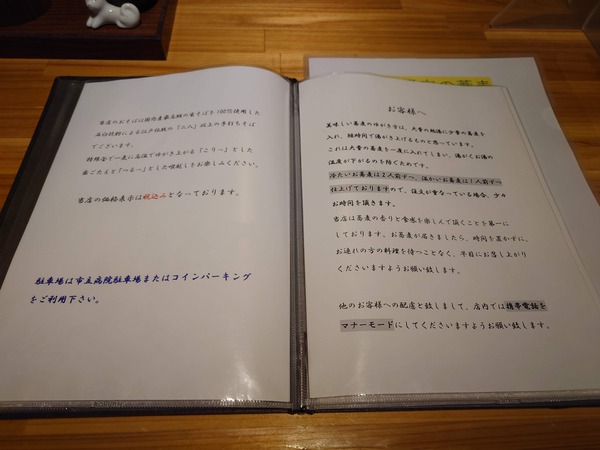 当店のおそばは国内産最高級の玄そばを100%使用した
石臼挽粉による江戸伝統の「二八」以上の手打ちそば
でございます。
特殊釜で一気に高温でゆがき上がる「こりっ」とした
歯ごたえと「つるっ」とした喉越しをお楽しみください。
当店の価格表示は税込みとなっております。
駐車場は市立病院駐車場またはコインパーキング
をご利用下さい。
お客様へ
美味しい蕎麦のゆがき方は、大量の熱湯に少量の蕎麦を
入れ、短時間で湯がき上げるものと思っています。
これは大量の蕎麦を一度に入れてしまい、湯がくお湯の
温度が下がるのを防ぐためです。
冷たいお蕎麦は2人前ずつ、温かいお蕎麦は1人前ずつ
仕上げておりますので、注文が重なっている場合、少々
お時間を頂きます。
当店は蕎麦の香りと食感を楽しんで頂くことを第一に
しております。お蕎麦が届きましたら、時間を置かずに、
お連れの方の料理を待つことなく、早目にお召し上がり
くださいますようお願い致します。
他のお客様への配慮と致しまして、店内では携帯電話を
マナーモードにしてくださいますようお願い致します。